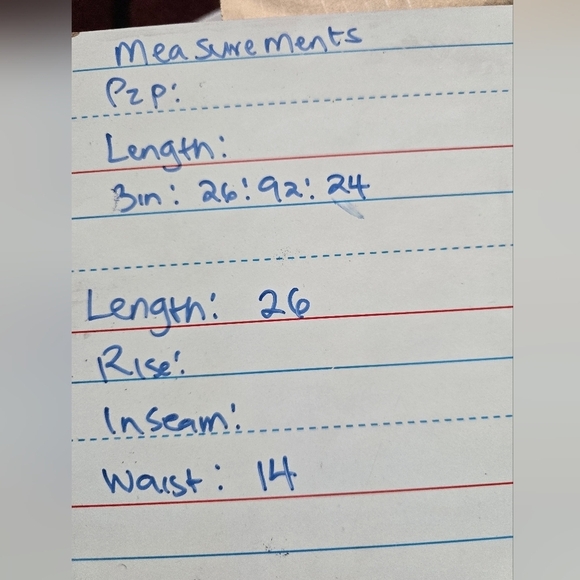 Measurements
P2P:
Length:
Bin: 26:92:24
Length: 26
Rise:
Inseam:
Waist: 14